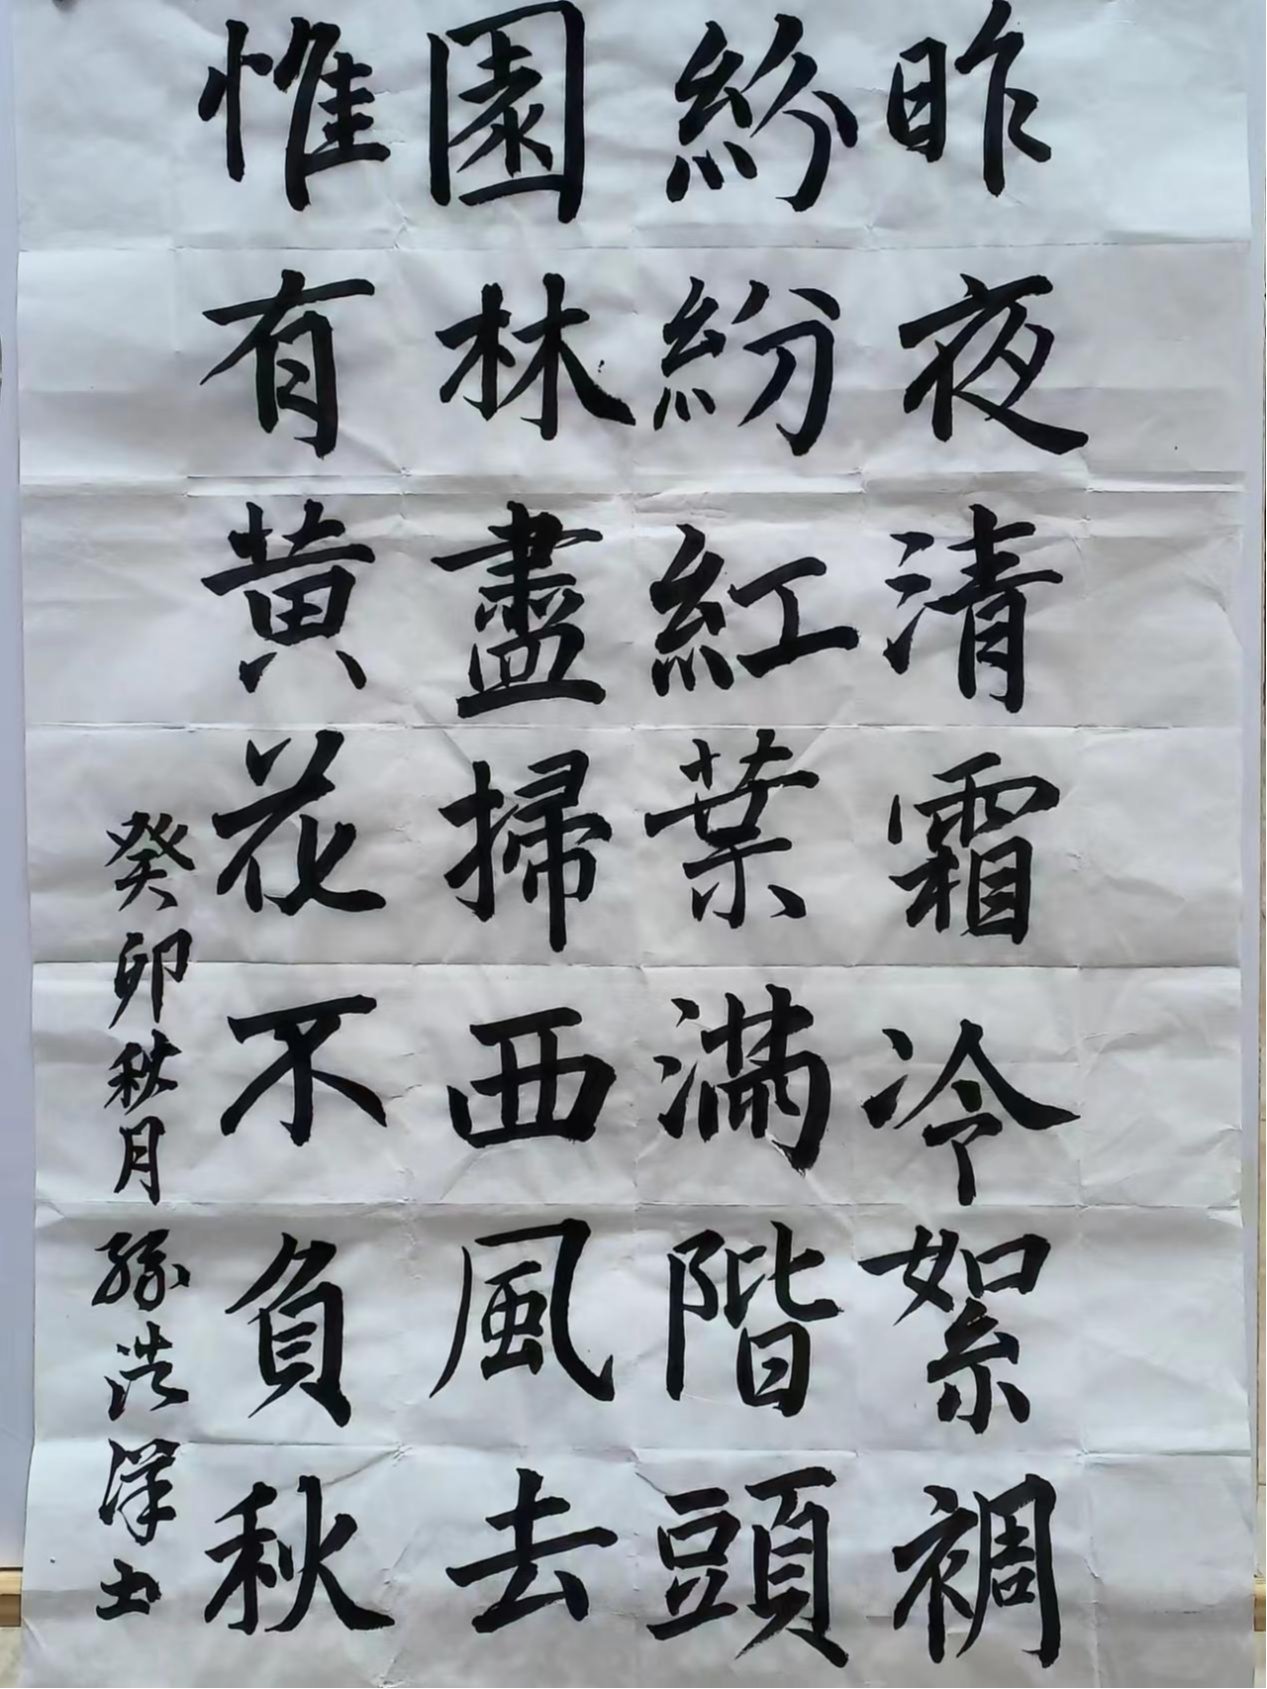 昨夜清霜冷絮裯
紛紛紅葉滿階頭
園林盡掃西風去
惟有黄花不負秋
癸卯秋月孫浩洋书